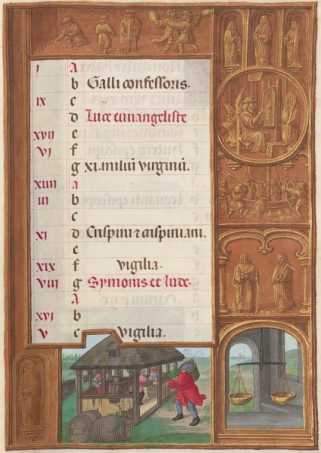 i A
b Galli confessoris.
ix c
d Luce euuangeliste
xvii e
vi f
g xi. miliū virginū.
xiiii A
iii b
c
xi d Crispini ⁊ crispiniani.
e
xix f vigilia.
viii g Symonis et Iude.
A
xvi b
v c vigilia.